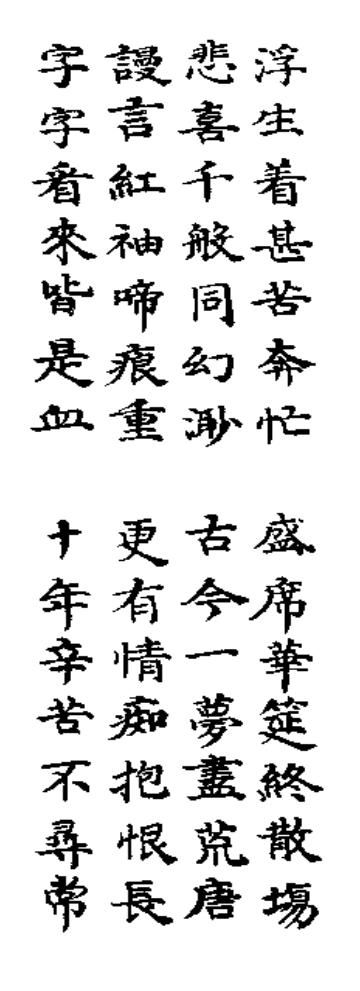 浮生着甚苦奔忙 盛席華筵終散場
悲喜千般同幻渺 古今一夢盡荒唐
謾言紅袖啼痕重 更有情痴抱恨長
字字看來皆是血 十年辛苦不尋常